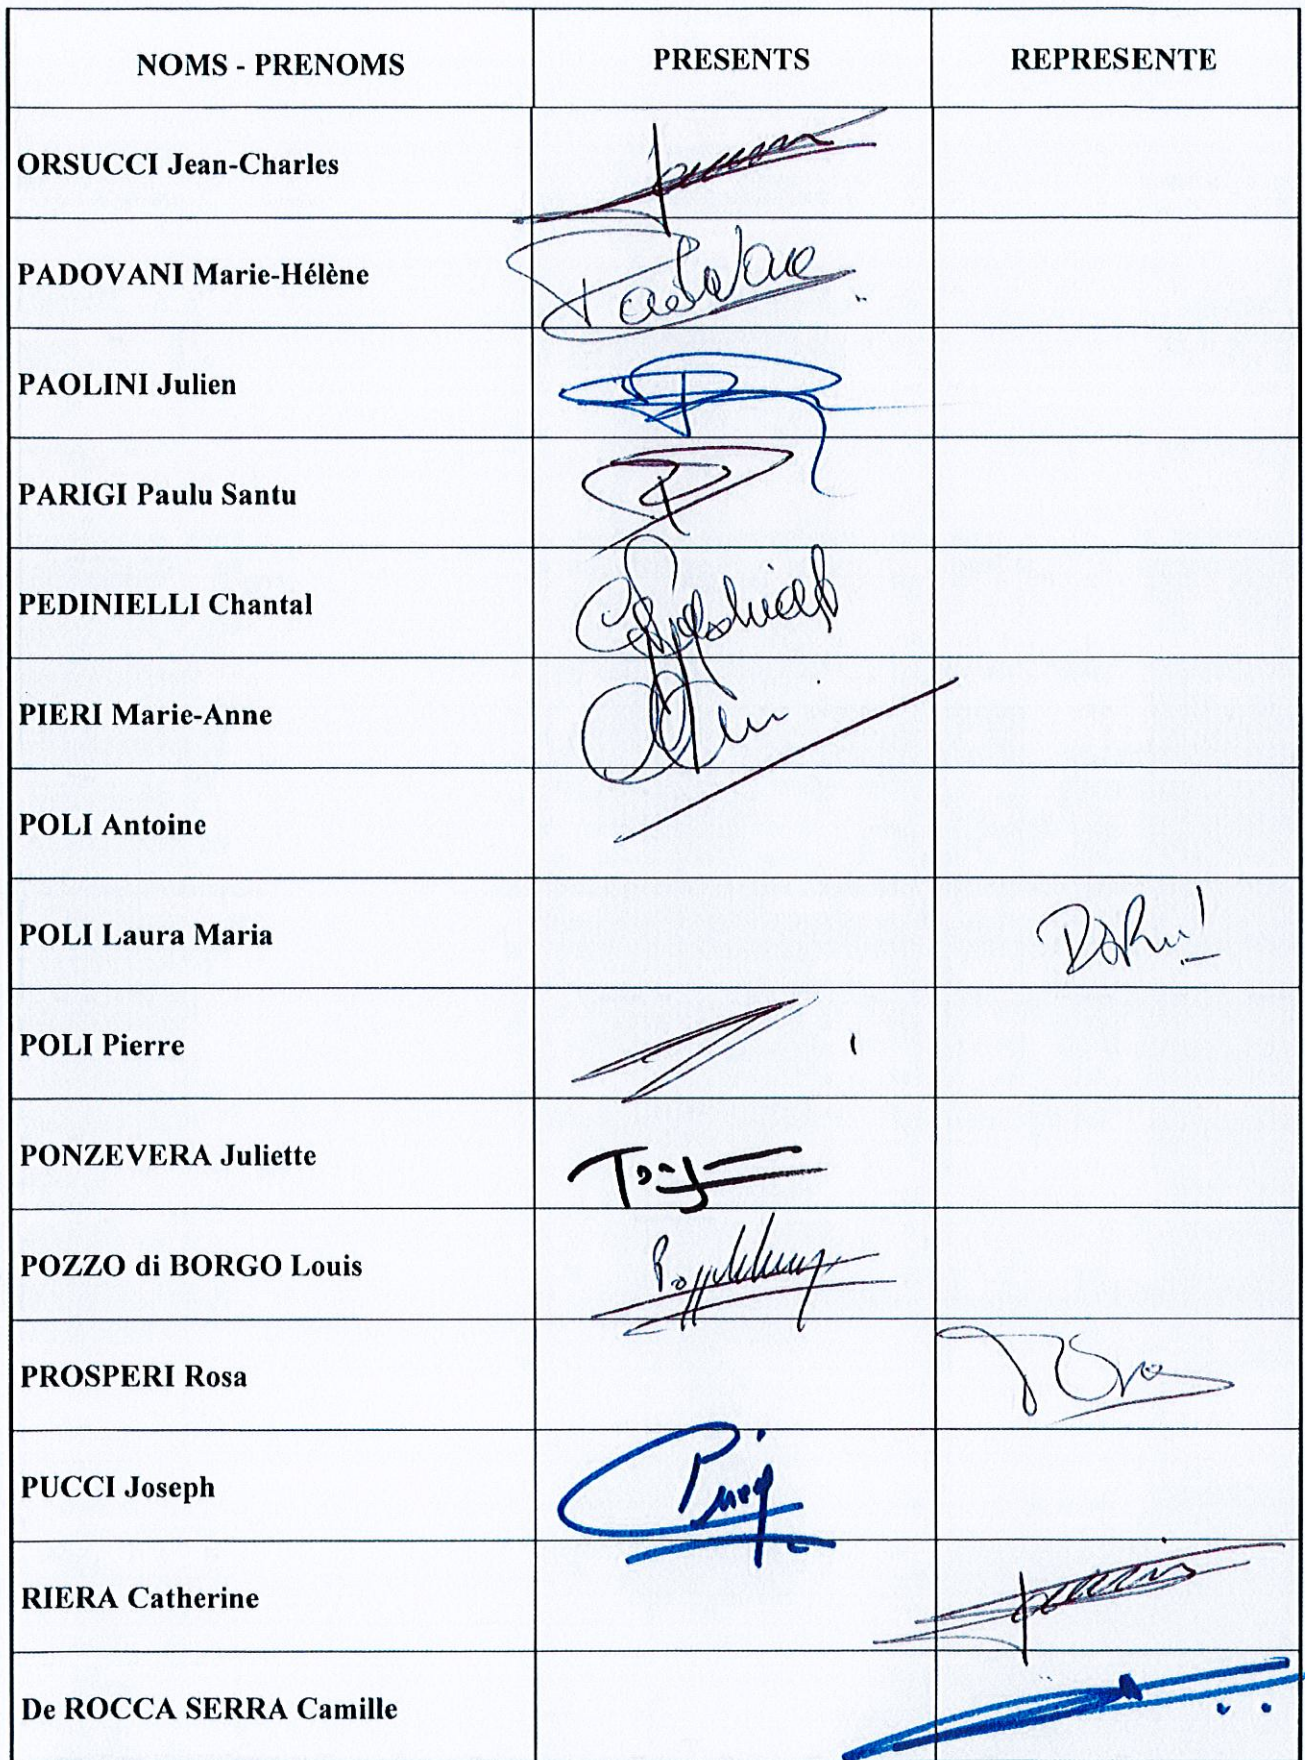 NOMS - PRENOMS PRESENTS REPRESENTE
ORSUCCI Jean-Charles
PADOVANI Marie-Hélène
PAOLINI Julien
PARIGI Paulu Santu
PEDINIELLI Chantal
PIERI Marie-Anne
POLI Antoine
POLI Laura Maria
POLI Pierre
PONZEVERA Juliette
POZZO di BORGO Louis
PROSPERI Rosa
PUCCI Joseph
RIERA Catherine
De ROCCA SERRA Camille